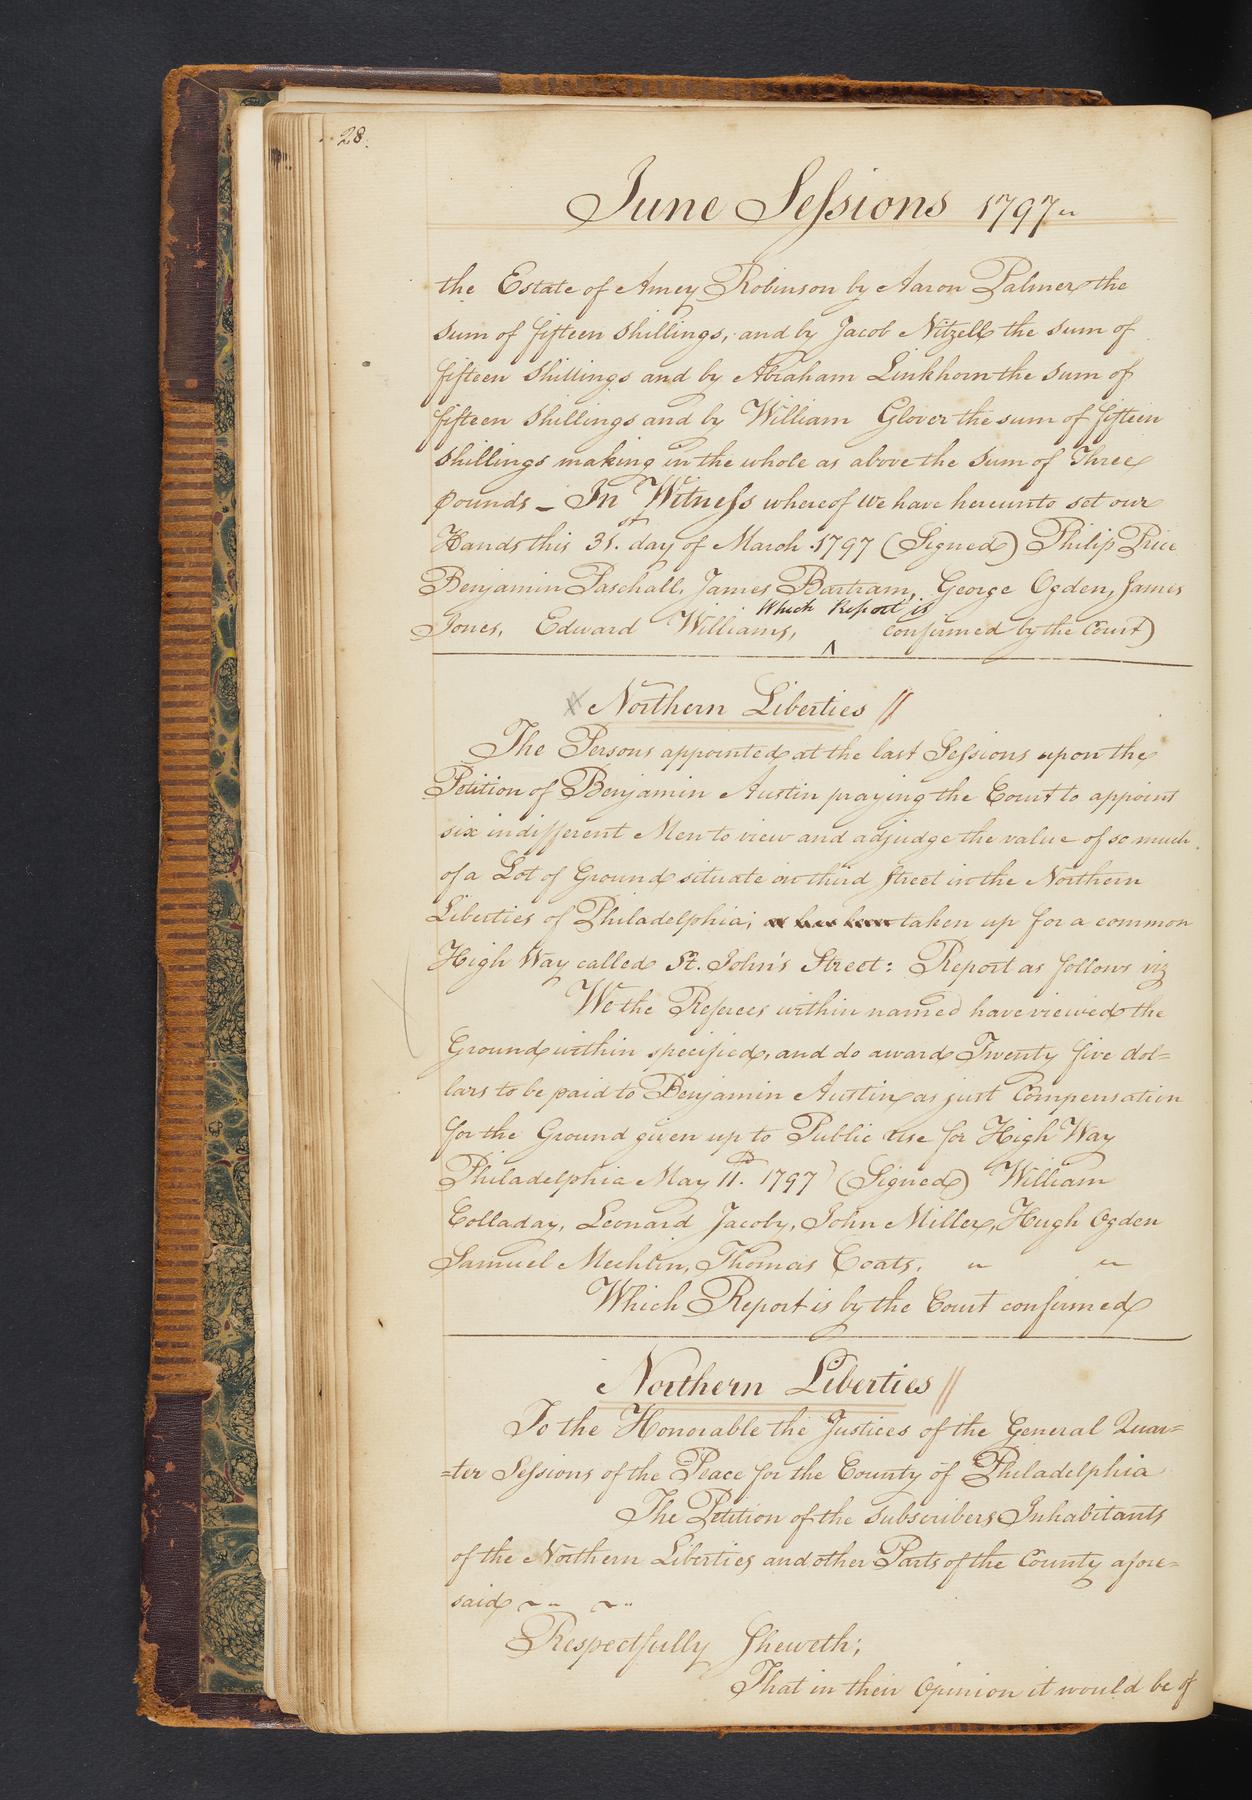 28.
June Sessions 1797
the Estate of Amey Robinson by Aaron Palmer the
sum of fifteen shillings, and by Jacob Nitzell the sum of
fifteen shillings and by Abraham Linkhorn the sum of
fifteen shillings and by William Glover the sum of fifteen
shillings making in the whole as above the sum of Three
pounds _ In Witness whereof we have hereunto set our
Hands this 31st. day of March 1797 (Signed) Philip Price
Benjamin Paschall, James Bartram, George Ogden, James
Which Report is
Jones, Edward Williams, ^ confirmed by the Court)
Northern Liberties //
The Persons appointed at the last Sessions upon the
Petition of Benjamin Austin praying the Court to appoint
six indifferent Men to view and adjudge the value of so much
of a Lot of Ground situate on third Street in the Northern
Liberties of Philadelphia; taken up for a common
High Way called St. John's Street: Report as follows viz
We the Referees within named have viewed the
Ground within specified, and do award Twenty five dol=
lars to be paid to Benjamin Austin as just Compensation
for the Ground given up to Public use for High Way
Philadelphia May 11th. 1797 (Signed) William
Colladay, Leonard Jacoby, John Miller, Hugh Ogden
Samuel Mechlin, Thomas Coats.
Which Report is by the Court confirmed
Northern Liberties //
To the Honorable the Justices of the General Quar=
=ter Sessions of the Peace for the County of Philadelphia
The Petition of the subscribers Inhabitants
of the Northern Liberties and other Parts of the County afore=
said
Respectfully Sheweth;
That in their Opinion it would be of